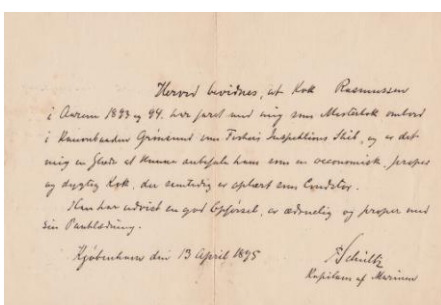 Herved bevidnes, at Kok Rasmussen
i Aarene 1893 og 94. har faret med mig som Mesterkok ombord
i Kanonbaaden Grønsund som Fiskeri Inspektions Skib, og er det
mig en Glæde at kunne anbefale ham som en oeconomisk, proper
og dygtig Kok, der samtidig er oplært som Conditor.
Han har udvist en god Opførsel, er ædruelig og proper med
sin Paaklædning.
Kjøbenhavn den 13 April 1895
Schultz
Kaptain af Marinen